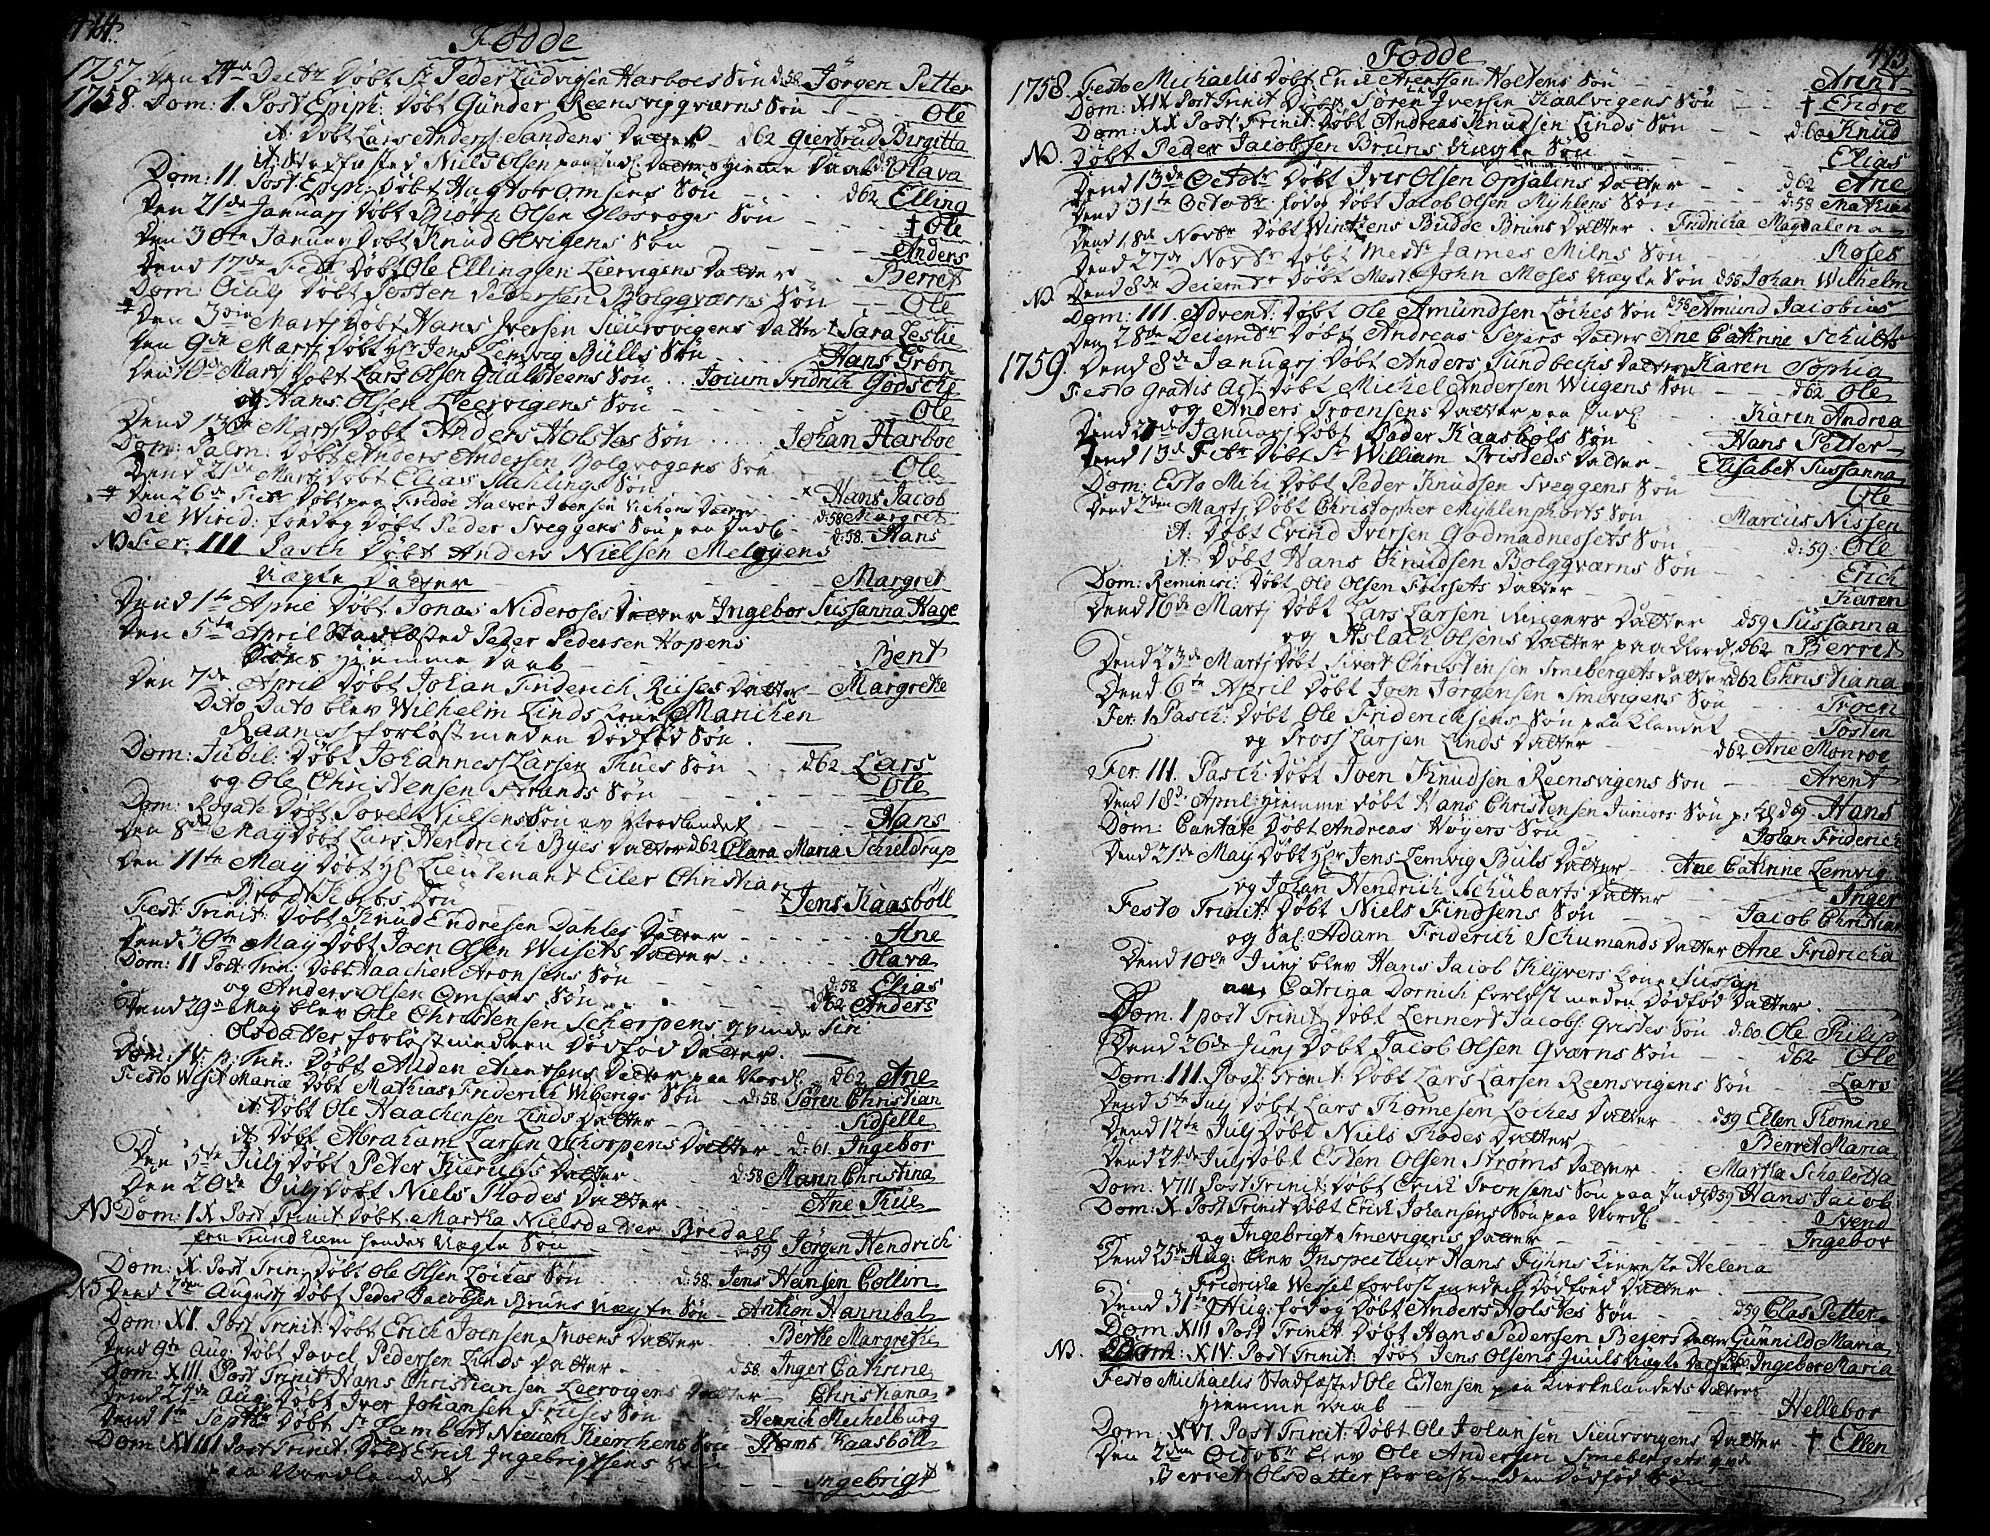 414.
Fødde
1757. Den 24de Decbr Døbt Sr Peder Ludvigsen Harboes Søn d:58 Jørgen Petter
1758. Dom: 1. Post Epiph: Døbt Gunder Reensviggværns Søn - Ole
it: Døbt Lars Anders: Sandens Datter d62 Giertrud Birgitta
it: Stadfæsted Niels Olsen paa Datters Hiemme Daab Olava
Dom: 11. Post Epiph: Døbt Hagtor Omsens Søn - d62 Elling
Den 21de Januarj Døbt Biørn Olsen Glosvogs Søn - † Ole
Den 30te Januarj Døbt Knud Olvigens Søn - Anders
Dend 17de Febr Døbt Ole Ellingsen Leervigens Datter - Berret
Dom: Oculj Døbt Tosten Pedersen Bolgqværns Søn - Ole
Den 3die Martj Døbt Hans Iversen Sieurovigens Datter † Sara Leslie
Den 9de Martj Døbt Hr Jens Lemvig Bulls Søn - Hans Grøn
Den 10de Martj Døbt Lars Olsen Gulsteens Søn - Jocum Fridrich Godsche
og Hans Olsen Leervigens Søn - Ole
Dend 13de Martj Døbt Anders Holstes Søn - Johan Harboe
Dom: Palm: Døbt Anders Andersen Bolgvogens Søn - Ole
Dend 21de Martj Døbt Elias Stahlings Søn - Hans Jacob
Den 26de Døbt paa Fredøe Halvor Joensen Vickens Datter - d:58 Margret
Die Virid: fød og Døbt Peder Sveggens Søn paa Indl: d:58. Hans
NB Fer: III Pasch Døbt Anders Nielsen Meløyens
Uægte Datter - Margret
Dend 1te April Døbt Jonas Nideroses Datter Ingebor Sussanna Hage
Den 5te April Stadfæsted Peder Pedersen Hopens
Søns Hjemme Daab - Bent
Den 7de April Døbt Johan Friderich Riises Datter - Margrethe
Dito Dato blev Wilhelm Linds Kone Marichen
Raanes forløst med en Dødfød Søn.
Dom: Jubil: Døbt Johannes Larsen Thues Søn - d62 Lars
og Ole Christensen Strands Søn - Ole
Dom: Rogate Døbt Povel Nielsens Søn av Nordlandet - Hans
Den 8de May Døbt Lars Hendrich Byes Datter d62 Clara Maria Schieldrup
Den 11te May Døbt Hr Lieutenant Eiler Christian
Søn - Jens Kaasbøll
Fest: Trinit: Døbt Knud Endresen Dahles Datter - Ane
Dend 30te May Døbt Joen Olsen Weisets Datter - Olava
Dom: 11 Post: Trin: Døbt Haachen Aronsens Søn - d:58 Elias
og Anders Olsen Omsens Søn - d62 Anders
Dend 29de May blev Ole Christensen Schorpens qvinde Siri
Olsdatter forløst med en Dødfød Datter.
Dom: IV: p: Trin: Døbt Auden Arentsens Datter paa Nordl: - d62 Ane
Festo Visit Mariæ Døbt Mathias Friderich Wibergs Søn - d:58. Søren Christian
it: Døbt Ole Haachensen Linds Datter - Sidselle
it: Døbt Abraham Larsen Schorpens Datter - d:61. Ingebor
Den 5te Julj Døbt Peter Kierulfs Datter - d:58 Mann Christina
Den 20de Julj Døbt Niels Thodes Datter - Ane Thue
NB Dom: IX Post Trinit: Døbt: Martha Nielsdatter Bredall
fra Trundhiem hendes Uægte Søn - 59 Jørgen Hendrich
Dom: X. Post Trin: Døbt Ole Olsen Løches Søn - d:58. Jens Hansen Collin
NB Dend 2den Augustj Døbt Peder Jacobsen Bruns Uægte Søn - Anthon Hannibal
Dom: XI. Post Trinit: Døbt Erich Joensen Snoens Datter - Berthe Margrethe
Dend 9de Aug: Døbt Povel Pedersen Linds Datter - d58. Inger Cathrine
Dom: XIII. Post Trinit: Hans Christiansen Leervigens Datter - Christiana
Dend 24de Aug: Døbt Iver Johansen Friises Søn - Henrich Meckelburg
Dend 1te Septbr Døbt Sr Lambert Nieuen Keerchens Søn - Hans Kaasbøll
Dom: XVIII Post Trinit: Døbt Erich Ingebrigtsens Søn
paa Nordlandet - Ingebrigt
415
Fødde
1758. Festo Michaelis Døbt Endre Arentsen Holtens Søn - Arent
Dom: XIX Post Trinit Døbt Søren Iversen Kaalvigens Søn - † Endre
Dom: XX Post Trinit: Døbt Andreas Knudsen Linds Søn - d:60 Knud
NB. Døbt Peder Jacobsen Bruns Uægte Søn - Elias
Dend 13de Octobr Døbt Iver Olsen Opsalens Datter - d62 Ane
Dend 31te Octobr fød og Døbt Jacob Olsen Myhlens Søn - d:58 Mathias
Dend 18de Novbr Døbt Wintzens Budde Bruns Datter - Fridricha Magdalena
Dend 27de Novbr Døbt Mestr James Milns Søn - Roses
NB. Dend 8de Decembr Døbt Mestr John Moses Uægte Søn d58 Johan Wilhelm
Dom: III Advent: Døbt Ole Amundsen Løches Søn d58 Amund Jacobius
Den 28de Decembr Døbt Andreas Sejers Datter Ane Cathrine Schults
1759. Dend 8de Januarj Døbt Anders Sundbechs Datter Karen Sophia
Festo Gratis Act Døbt Michel Andersen Wugens Søn - d62 Ole
og Anders Troensens Datter paa Indl: - Karen Andrea
Dend Januarj Døbt Peder Kaasbøls Søn - Hans Petter
Dend 13de Febr Døbt Sr William Pristeds Datter - Elisabet Sussanna
Dom: Esto Mihi Døbt Peder Knudsen Sveggens Søn - Ole
Dend 2den Martj Døbt Christopher Myhlenphorts Søn - Marcus Nissen
it: Døbt Evind Iversen Godmadnessets Søn - d:59: Ole
it Døbt Hans Knudsen Bolgqværns Søn - Erich
Dom: Reminisc: Døbt Ole Olsen Forsets Datter - Karen
Dend 16de Martj Døbt Lars Larsen Ringers Datter d59 Sussanna
og Aslach Olsens Datter paa Nordl: d62 Berret
Dend 23de Martj Døbt Sivert Christensen Smebergets Datter d62 Christiana
Dend 6te April Døbt Joen Jørgensen Smevigens Søn - Troen
Fer: 1 Pasch: Døbt Ole Friderichsens Søn paa Landet - Tosten
og Tross Larsen Linds Datter - d62 Ane Monroe
Fer: III. Pasch: Døbt Joen Knudsen Reensvigens Søn - Arent
Dend 18de April: Hiemme døbt Hans Christensen Juniors Søn d69 Hans
Dom: Cantate Døbt Andreas Høyers Søn - Johan Friderich
Dend 21de May Døbt Hr Jens Lemvig Buls Datter - Ane Cathrine Lemvig
og Johan Hendrich Schubarts Datter - Inger
Festo Trinit: Døbt Niels Findsens Søn - Jacob Christian
og Sal: Adam Friderich Schumands Datter Ane Fridricha
Dend 10de Junj blev Hans Jacob Klyvers Kone Sussan
na Catrina Dornich forløst med en Dødfød Datter.
Dom: 1 post Trinit: Døbt Lennert Jacobs: Qvistes Søn d:60. Ole Philip
Dend 26de Junj Døbt Jacob Olsen Qværns Søn - d62 Ole
Dom: III. Post: Trinit: Døbt Lars Larsen Reensvigens Søn - Lars
Dend 5te Julj Døbt Lars Thomesen Løches Datter - d59 Ellen Thomine
Dend 12te Julj Døbt Niels Thodes Datter - Berret Maria
Dend 24de Julj Døbt Esten Olsen Strøms Datter - Martha Scharlotta
Dom: VIII Post Trinit: Døbt Erich Tronsens Søn paa Indl d59 Hans Jacob
Dom: X. Post Trinit Døbt Erich Johansens Søn paa Nordl: - Svend
og Ingebrigt Smevigens Datter - Ingebor
Dend 25de Aug: blev Inspecteur Hans Fyhns Kiereste Helena
Fredricha Wessel forløst med en Dødfød Datter
Dend 31te Aug: fød og Døbt Anders Holstes Søn - d59 Clas Petter
Dom: XIII Post Trinit: Døbt Hans Pedersen Bejers Datter Gunnild Maria
NB. Dom: XIV: Post Trinit: Døbt Jens Olsens Juuls Uægte Datter Ingebor Maria
Festo Michaelis Stadfæsted Ole Estensen paa Kirkelandets Datters
Hjemme Daab - Hellebor
Dom: XVI. Post Trinit: Døbt Ole Johansen Sieurovigens Datter † Ellen
Den 2den Octobr blev Ole Andersen Smebergets qvde
Berret Olsdatter forløst med en Dødfød Søn